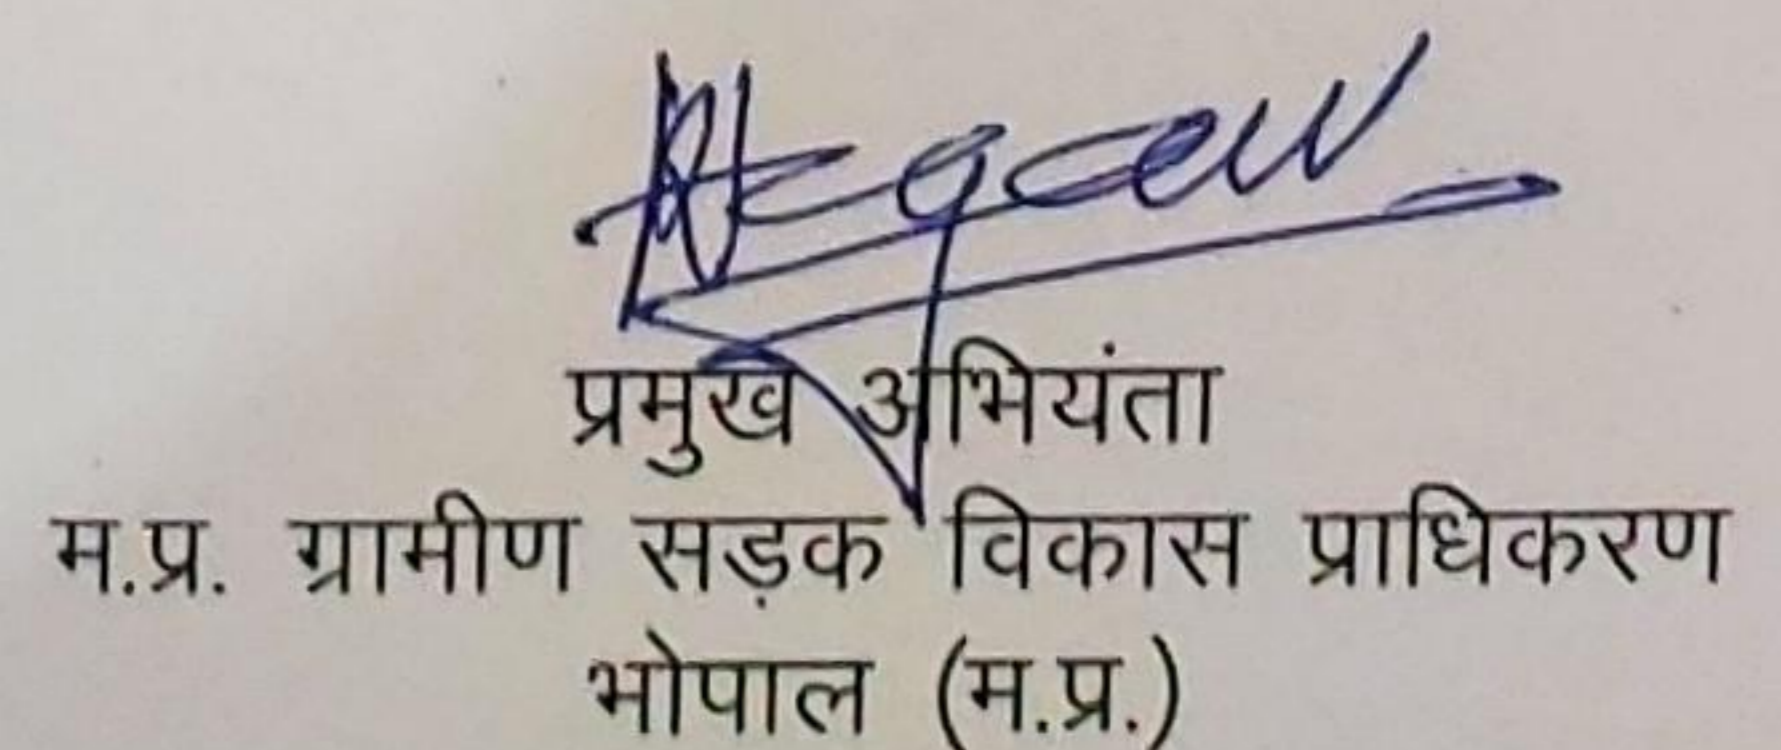 प्रमुख अभियंता
म.प्र. ग्रामीण सड़क विकास प्राधिकरण
भोपाल (म.प्र.)